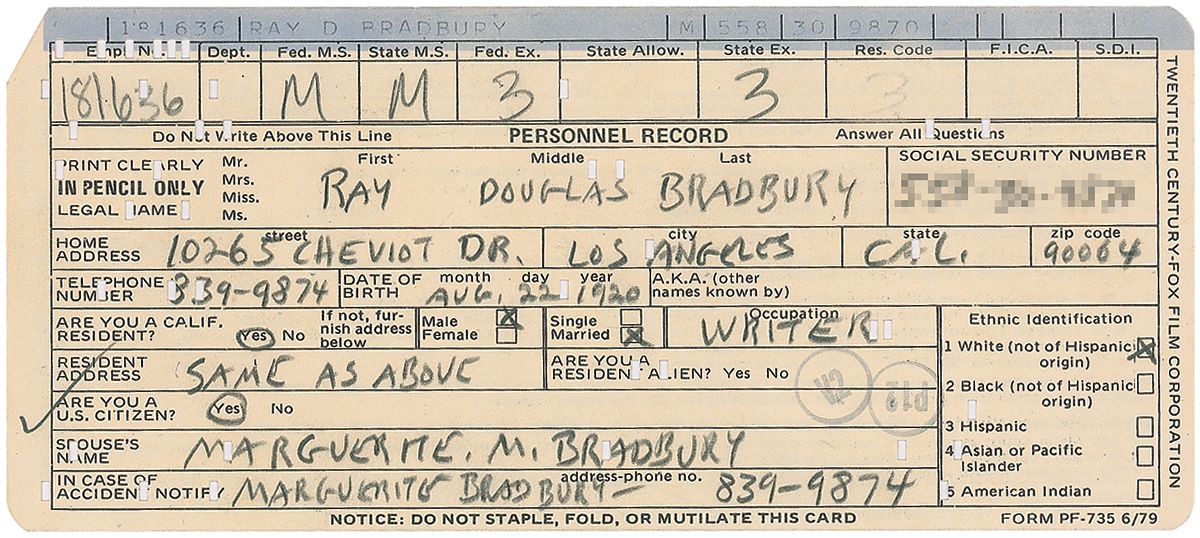 181636 RAY D BRADBURY M
Empl No. Dept. Fed. M.S. State M.S. Fed. Ex. State Allow. State Ex. Res. Code F.I.C.A. S.D.I.
181636 M M 3 3 3
Do Not Write Above This Line PERSONNEL RECORD Answer All Questions
PRINT CLEARLY IN PENCIL ONLY LEGAL NAME
Mr. Mrs. Miss. Ms.
First Middle Last SOCIAL SECURITY NUMBER
RAY DOUGLAS BRADBURY
HOME ADDRESS street city state zip code
10265 CHEVIOT DR. LOS ANGELES CAL. 90064
TELEPHONE NUMBER 839-9874 DATE OF BIRTH month day year AUG. 22 1920 A.K.A. (other names known by)
ARE YOU A CALIF. RESIDENT? Yes No If not, furnish address below Male Female Single Married Occupation WRITER
RESIDENT ADDRESS SAME AS ABOVE ARE YOU A RESIDENT ALIEN? Yes No
CA P12
ARE YOU A U.S. CITIZEN? Yes No
SPOUSE'S NAME MARGUERITE. M. BRADBURY
IN CASE OF ACCIDENT NOTIFY address-phone no. MARGUERITE BRADBURY— 839-9874
Ethnic Identification
1 White (not of Hispanic origin)
2 Black (not of Hispanic origin)
3 Hispanic
4 Asian or Pacific Islander
5 American Indian
NOTICE: DO NOT STAPLE, FOLD, OR MUTILATE THIS CARD FORM PF-735 6/79
TWENTIETH CENTURY-FOX FILM CORPORATION